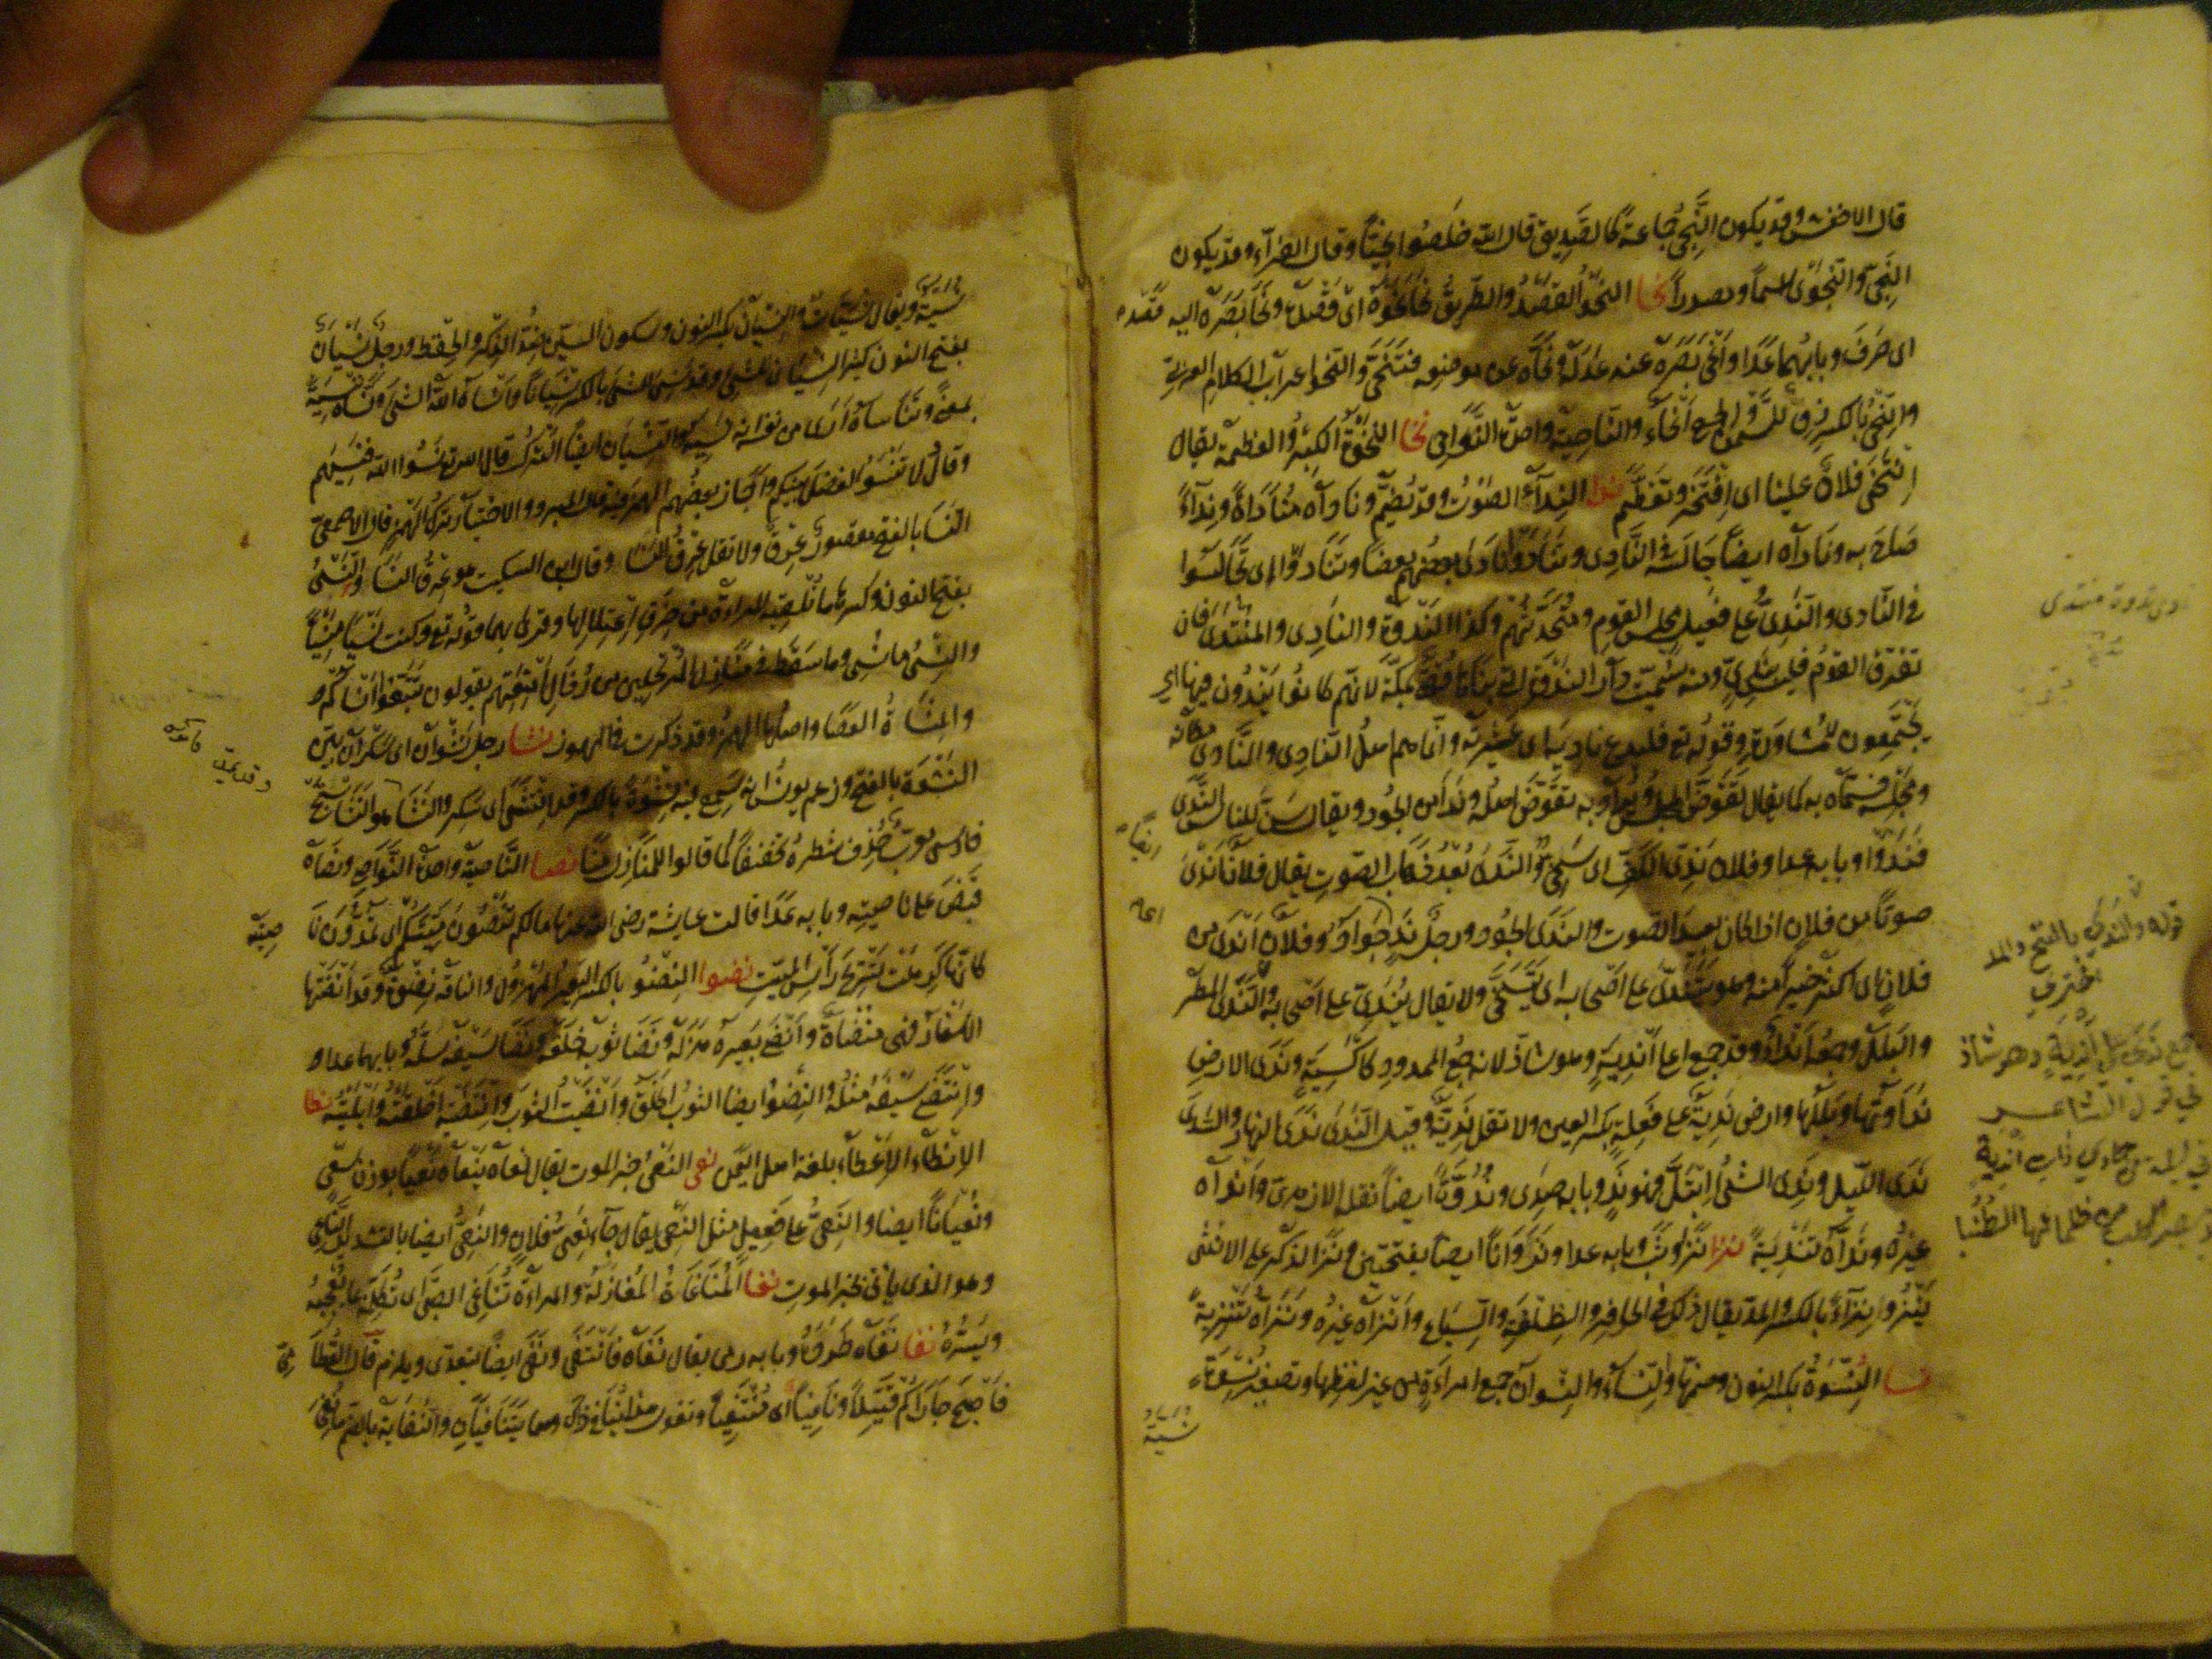 قال الاخفش وقد يكون النَّجِيُّ جماعةً كالصَّديق قال الله خَلَصُوا نجيًّا وقال الفرّاء وقد يكون
النَّجِيّ والنَّجوى اسمًا ومصدرًا نحا النَّحْوُ القَصْدُ والطَّريقُ نَحَا نَحْوَهُ اى قَصَدَ ونَحَا بَصَرَهُ اليه
اى صَرَفَ وبابهما عَدَا وأَنْحَى بَصَرَهُ عنه عَدَلَهُ ونَحَّاه عن موضعه فتَنَحَّى والنّحو اعراب الكلام العربيّ
والنِّحْيُ بالكسر زِقّ للسَّمْن والجمع أَنْحَاء والناصية واحدة النَّواصي نخا النَّخْوَةُ الكِبْرُ والعظمة يقال
انْتَخَى فلانٌ علينا اى افْتَخَرَ وتَعَظَّمَ ندا النِّدَاءُ الصَّوْتُ وقد يُضَمّ ونَادَاه مُنَادَاةً ونِدَاءً
صَاحَ به ونَادَاه ايضًا جَالَسَه في النَّادي وتَنَادَوْا نَادَى بعضُهم بعضًا وتَنَادَوْا اى تَجَالَسُوا
في النّادي والنَّدِيُّ على فَعِيلٍ مجلس القوم ومُتَحَدَّثُهم وكذا النَّدْوَة والنّادي والمُنْتَدَى فان
تفرّق القومُ فليس بِنَدِيٍّ ومنه سُمِّيَت دار النَّدْوَة التي بناها قُصَيّ بمكّة لانهم كانوا يَنْدُون فيها اى
يجتمعون للمُشَاوَرَة وقولُه تع فليدع ناديه اى عَشِيرَتَه وانما هم اهلُ النّادي والنّادي مكانُه
ومَجْلِسُه فسَمّاه به كما يقال تَقَوَّضَ المجلس ويُراد به تَقَوَّضَ اهلُه ونَدَا من الجُود ويقال سَنَّ للناس النَّدَى
فنَدَوْا وبابه عدا وفلان نَدِيُّ الكَفِّ اى سَخِيّ والنَّدَى بُعْدُ ذهاب الصَّوت يقال فلانٌ أَنْدَى
صوتًا من فلان اذا كان بعيدَ الصوت والنَّدَى الجُود ورجلٌ نَدٍ جَوَاد وفلان أَنْدَى من
فلان اى اكثر خيرًا منه وهو يَتَنَدَّى على اصحابه اى يَتَسَخَّى ولا يقال يُنَدِّي على اصحابه والنَّدَى المطر
والبَلَل وجمعُه أَنْدَاءٌ وقد جمع على أَنْدِيَةٍ وهو شاذّ لانه جمعُ الممدود كأَكْسِيَة ونَدَى الارضِ
نَدَاوَتُها وبَلَلُها وارض نَدِيَةٌ على فَعِلَةٍ بكسر العين ولا تقل نَدِيَّةٌ وقيل النَّدَى نَدَى النهار والسَّدَى
نَدَى الليل ونَدِيَ الشيءُ ابْتَلَّ فهو نَدٍ وبابه صَدِيَ ونُدُوَّةً ايضًا نقله الازهري وأَنْدَاه
غيرُه ونَدَّاهُ تَنْدِيَةً نزا نَزَا وَثَبَ وبابه عدا ونَزَوَانًا ايضًا بفتحتين ونَزَا الذَّكَر على الانثى
يَنْزُو نِزَاءً بالكسر والمدّ يقال ذلك في الحافر والظِّلف والسِّبَاع وأَنْزَاه غيرُه ونَزَّاه تَنْزِيَةً
نسا النِّسْوَةُ بكسر النون وضمّها والنِّسَاء والنِّسْوَان جمع امرأةٍ من غير لفظها وتصغير نِسْوَة
نُسَيَّة
نادي ندوة منتدى
قوله والندي بالفتح والمد
جمع ندى على أندية وهو شاذ
في قول الشاعر
في ليلة من جمادى ذات أندية
لا يبصر الكلب من ظلمائها الطنبا
نُسَيَّةٌ ويقال نُسَيَّات والنِّسْيَانُ بكسر النون وسكون السين ضِدُّ الذِّكر والحِفْظ ورجلٌ نَسْيَانُ
بفتح النون كثير النِّسْيان للشيء وقد نَسِيَ الشيء بالكسر نِسْيَانًا وأَنْسَاه اللهُ الشيء ونَسَّاه تَنْسِيَةً
بمعنًى وتَنَاسَاهُ ارَى من نفسه انه نَسِيَهُ والنِّسْيان ايضًا التَّرْكُ قال الله تع نَسُوا الله فنَسِيَهم
وقال ولا تَنْسَوُا الفضلَ بينكم واجاز بعضُهم الهمز فيه قال المبرد والاختيار تركُ الهمز قال الاصمعي
النَّسَا بالفتح مقصورٌ عِرْقٌ ولا تقل عِرْقُ النَّسَا وقال ابن السكيت هو عِرْقُ النَّسَا والنَّسْيُ
بفتح النون وكسرها ما تُلقيه المرأة من خِرَقِ اعتلالها وقرئ بهما قوله تع وكنت نسيا منسيّا
والنِّسْيُ ما نُسِيَ وما سَقَطَ في منازل المُرْتَحِلِين من رُذَالِ أَمْتِعَتِهم يقولون تَتَبَّعُوا أَنْسَاءكم
والمِنْسَاةُ العَصَا واصلُها الهمزُ وقد ذكرت في المهموز نشا رجل نَشْوَان اى سَكْرَان بيّن
النَّشْوَة بالفتح وزعم يونسُ انه سَمِعَ فيه نِشْوَة بالكسر وقد انْتَشَى اى سَكِر والنَّشَا هو النَّشَاسْتَج
فارسي معرب حُذِف شَطْرُه تخفيفًا كما قالوا للمنازل مَنَا نصا النّاصية واحدة النَّوَاصي ونَصَاه
قَبَضَ على ناصيته وبابه عَدَا قالت عايشة رضى الله عنها ما لكم تَنْصُون مَيِّتَكم اى تَمُدُّون
كانها كَرِهت تَسْرِيحَ رَأْسِ الميت نضوا النِّضْوُ بالكسر البعير المَهْزُول والناقة نِضْوَة وقد أَنْضَتْها
الاسفار فهى مُنْضَاة وأَنْضَى بَعِيرَه هَزَلَه ونَضَا ثَوْبَه خَلَعَه ونَضَا سَيْفَه سَلَّه وبابهما عدا
وانْتَضَى سَيْفَه مثلُه والنِّضْوُ ايضا الثوبُ الخَلَق وأَنْضَيْتُ الثوبَ وانْتَضَيْتُه أَخْلَقْتُه وأَبْلَيْتُه نطا
الإنْطَاء الإعْطَاء بلغة اهل اليمن نعى النَّعْيُ خبر الموت يقال نَعَاه يَنْعَاه نَعْيًا بوزن سَعْى
ونُعْيَانًا ايضا والنَّعِيُّ على فَعِيلٍ مثل النَّعْي يقال جاء نَعِيُّ فلان والنَّعِيُّ ايضا بالتشديد النّاعي
وهو الذى يأتى بخبر الموت نغا المُنَاغَاةُ المُغَازَلَة والمرأة تُنَاغِي الصَّبِيَّ اى تُكَلِّمُه بما يُعْجِبُه
ويَسُرُّهُ نفا نَفَاه طَرَدَهُ وبابه رمى يقال نَفَاه فانْتَفَى ونَفَى ايضًا يتعدّى ويلزم قال القُطَامِيّ
فأَصْبَحَ جارَاكُم قَتِيلًا ونَافِيًا اى مُنْتَفِيًا وتقول هذا يُنَافِي ذلك وهما يَتَنَافَيَان والنُّفَاية بالضم ما نُفِيَ